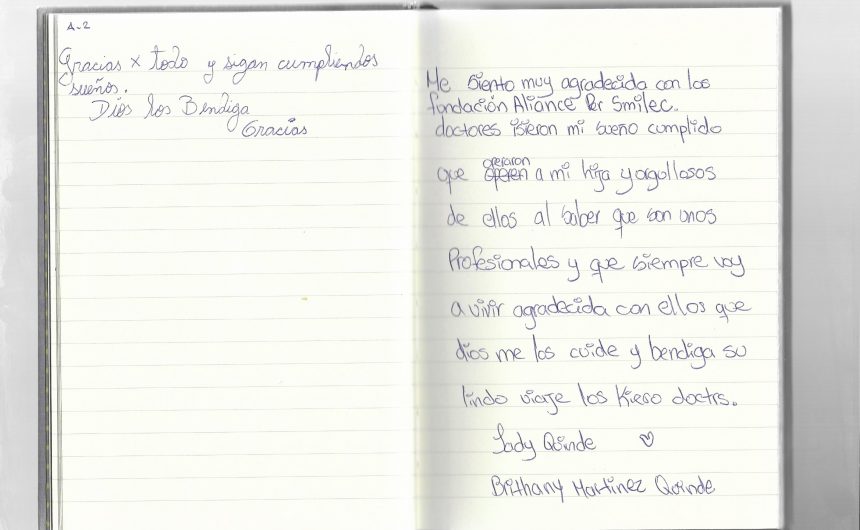 A-2
Gracias x todo y sigan cumpliendos
sueños.
Dios los Bendiga
Gracias
Me siento muy agradecida con los
fondación Aliance for Smilec.
doctores isieron mi sueño cumplido
que operaron a mi hija y orgullosos
de ellos al saber que son unos
Profesionales y que siempre voy
a vivir agradecida con ellos que
dios me los cuide y bendiga su
lindo viaje los Kiero doctrs.
Lady Quinde ♡
Brithany Martinez Quinde